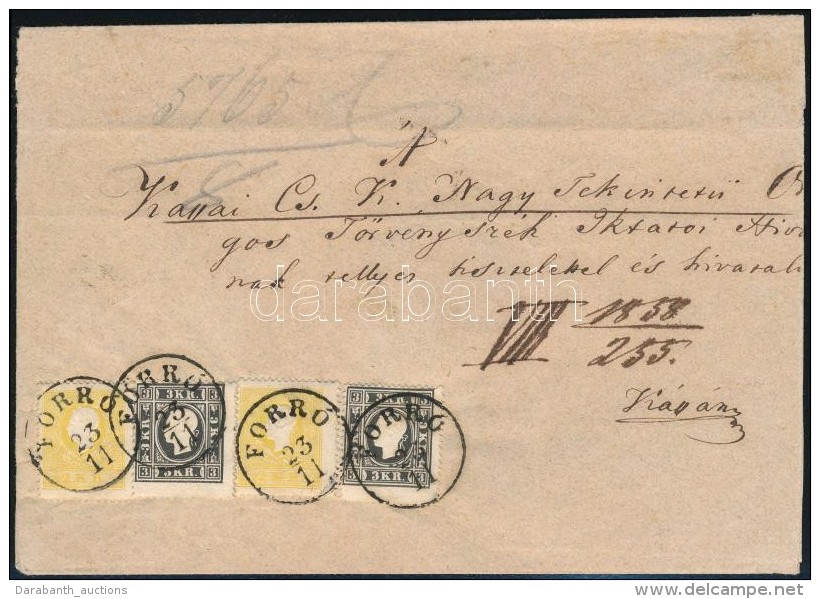 5765
8
A
Kassai Cs. K. Nagy Tekintetü Or
gos Törvényszék Iktatoi Hiva
nak tellyes tisztelettel és hivatali
VIII 1858
255.
Kássán
darabanth
FORRÓ
23
11
FORRÓ
23
11
FORRÓ
23
11
FORRÓ
23
11
3 KR.
3 KR.
3 KR.
3 KR.
Darabanth_auctions
delcampe.net